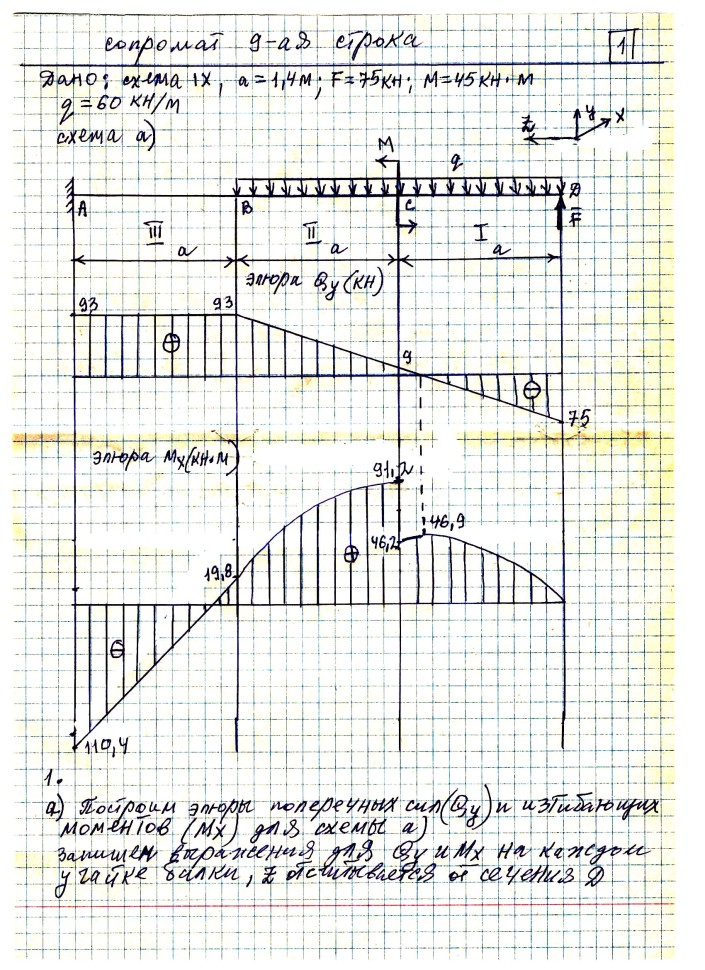 сопромат 9-ая строка
1
Дано: схема IX, a=1,4м; F=75кН; M=45кН·м
q=60 кН/м
схема а)
Z y x
M q
A B C D
F
III II I
a a a
эпюра Qy(кН)
93 93
⊕ 9 ⊖
75
эпюра Mx(кН·м)
91,2
46,9
46,2
19,8 ⊕
⊖
110,4
1.
а) Построим эпюры поперечных сил(Qy) и изгибающих
моментов (Mx) для схемы а)
Запишем выражения для Qy и Mx на каждом
учатке балки, Z отсчитывается от сечения D